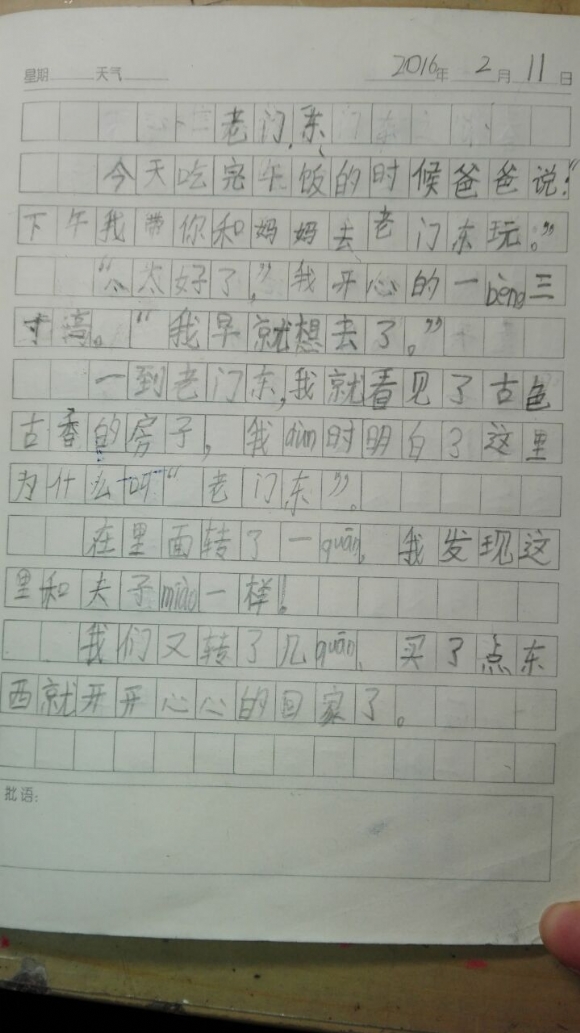 星期 天气 2016年 2月 11日
老门东
今天吃完午饭的时候爸爸说:“
下午我带你和妈妈去老门东玩。”
“太太好了,”我开心的一bèng三
寸高。“我早就想去了。”
一到老门东,我就看见了古色
古香的房子,我dùn时明白了这里
为什么叫“老门东”。
在里面转了一quān,我发现这
里和夫子miào一样!
我们又转了几quān,买了点东
西就开开心心的回家了。
批语: